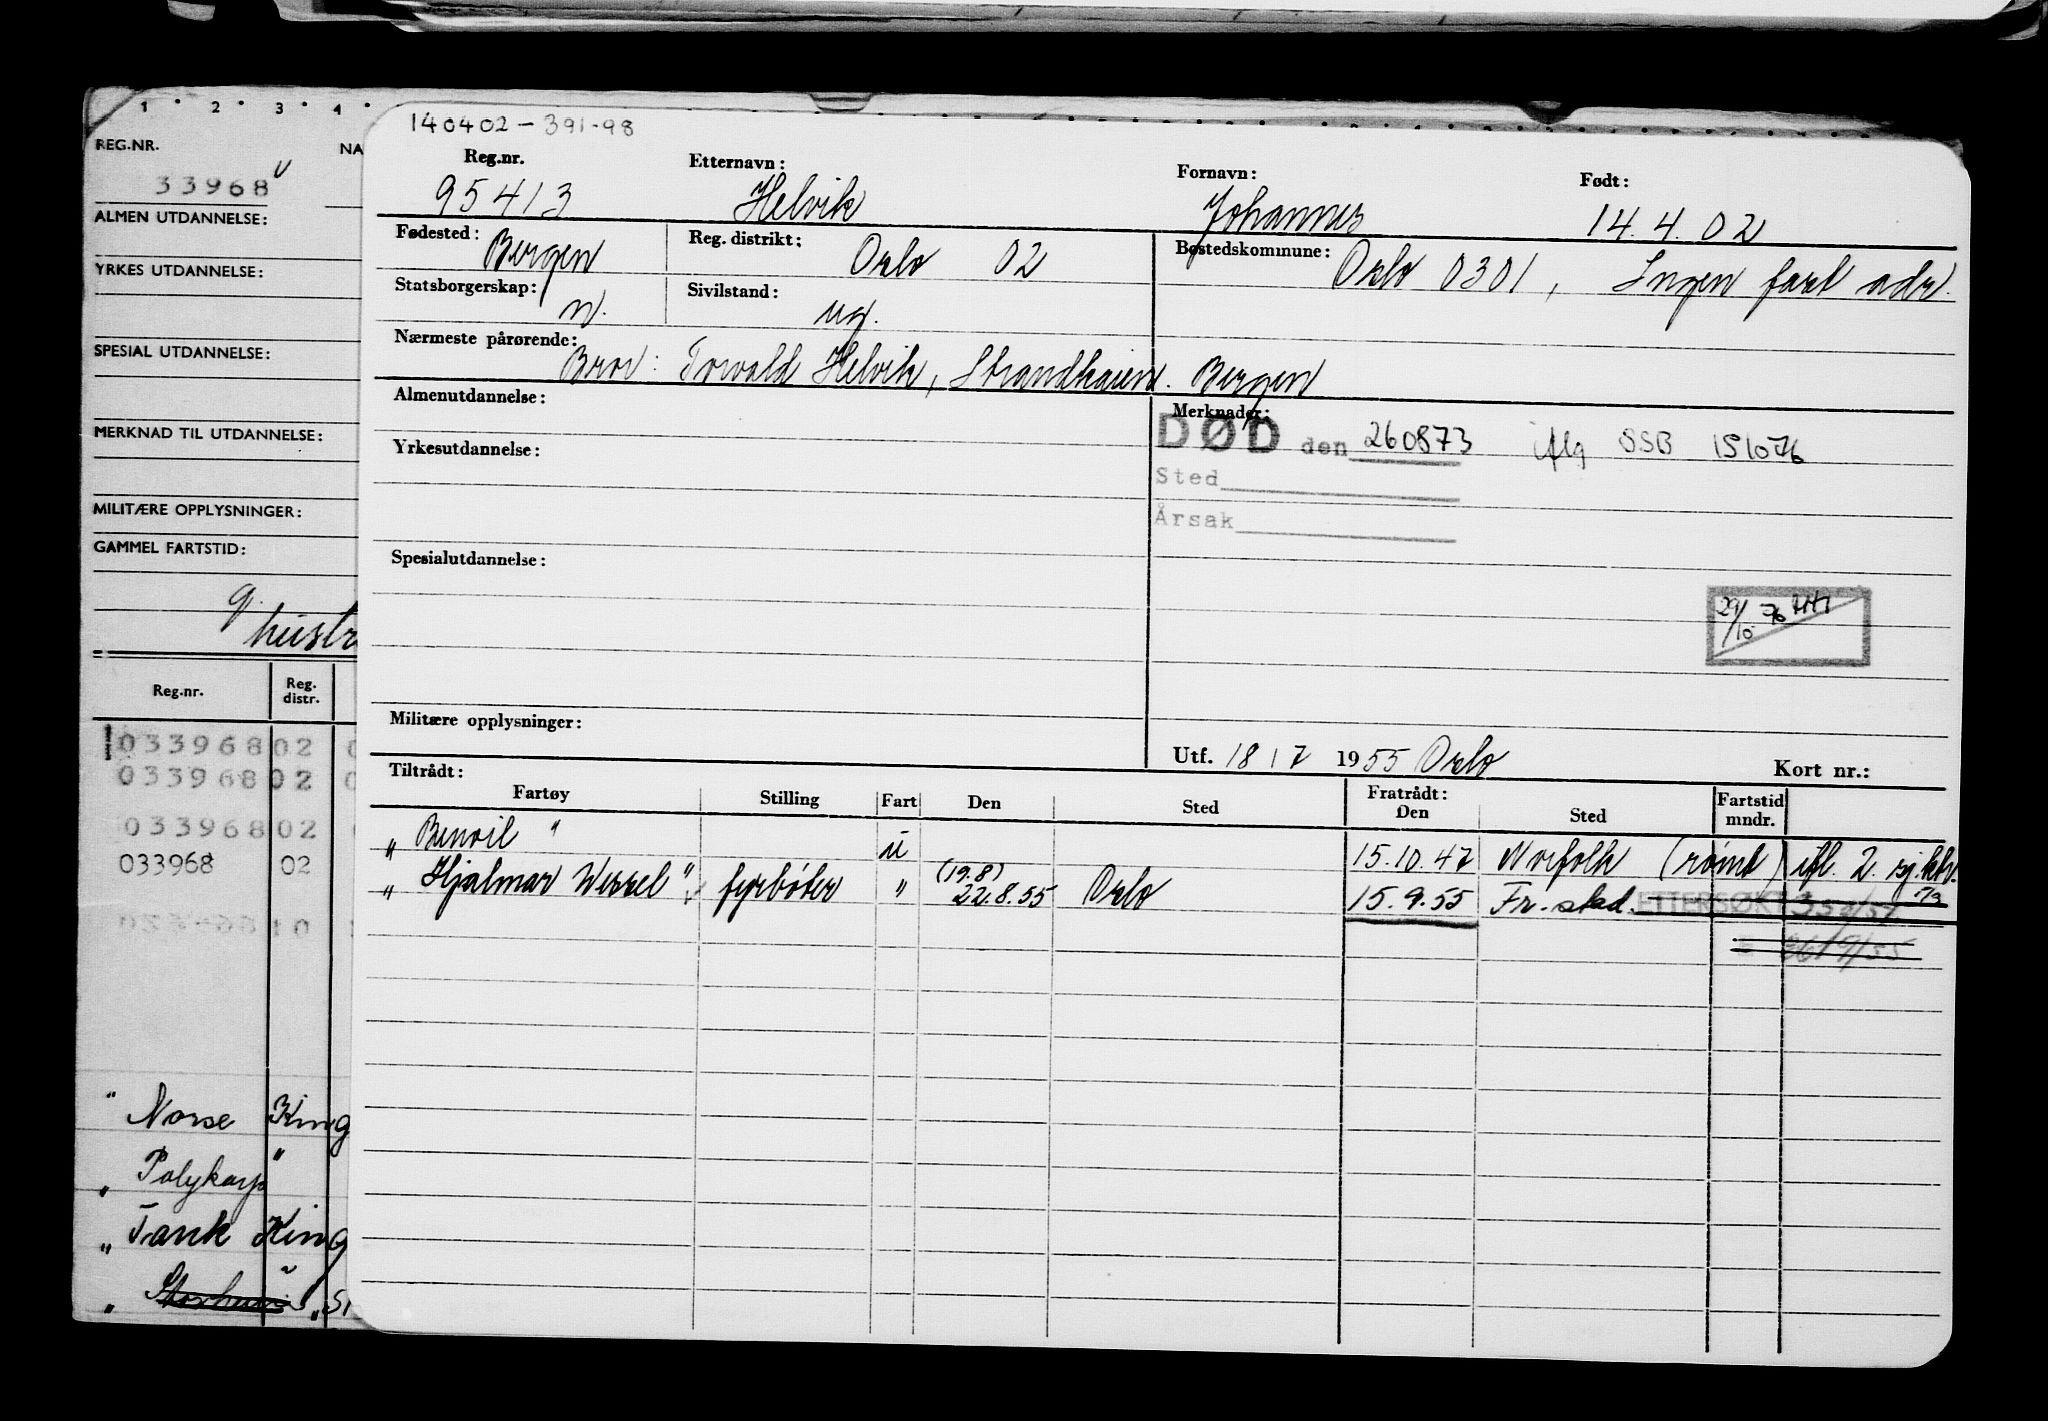 1 2 3 4
REG.NR. NA
33968
ALMEN UTDANNELSE:
YRKES UTDANNELSE:
SPESIAL UTDANNELSE:
MERKNAD TIL UTDANNELSE:
MILITÆRE OPPLYSNINGER:
GAMMEL FARTSTID:
g.
hustr
Reg.nr. Reg. distr.
033968 02
033968 02
033968 02
033968 02
" Norse King
" Polykarp "
" Tank King "
140402-391-98
Reg.nr. Etternavn: Fornavn: Født:
95413 Helvik Johannes 14.4.02
Fødested: Bergen Reg. distrikt: Oslo 02 Bostedskommune: Oslo 0301, Ingen fast adr.
Statsborgerskap: n. Sivilstand: ug.
Nærmeste pårørende: Bror: Torvald Helvik, Strandkaien. Bergen
Almenutdannelse: Merknader:
DØD den 260873 iflg SSB 151076
Yrkesutdannelse:
Sted
Årsak
Spesialutdannelse:
29/10 76
Militære opplysninger:
Utf. 18/7 1955 Oslo Kort nr.:
Tiltrådt: Fratrådt:
Fartøy Stilling Fart Den Sted Den Sted Fartstid mndr.
" Benvil " u 15.10.47 Norfolk (rømt) ifl. 2. sj.
" Hjalmar Wessel" fyrbøter " (19.8) 22.8.55 Oslo 15.9.55 Fr.stad. ETTERSØKT